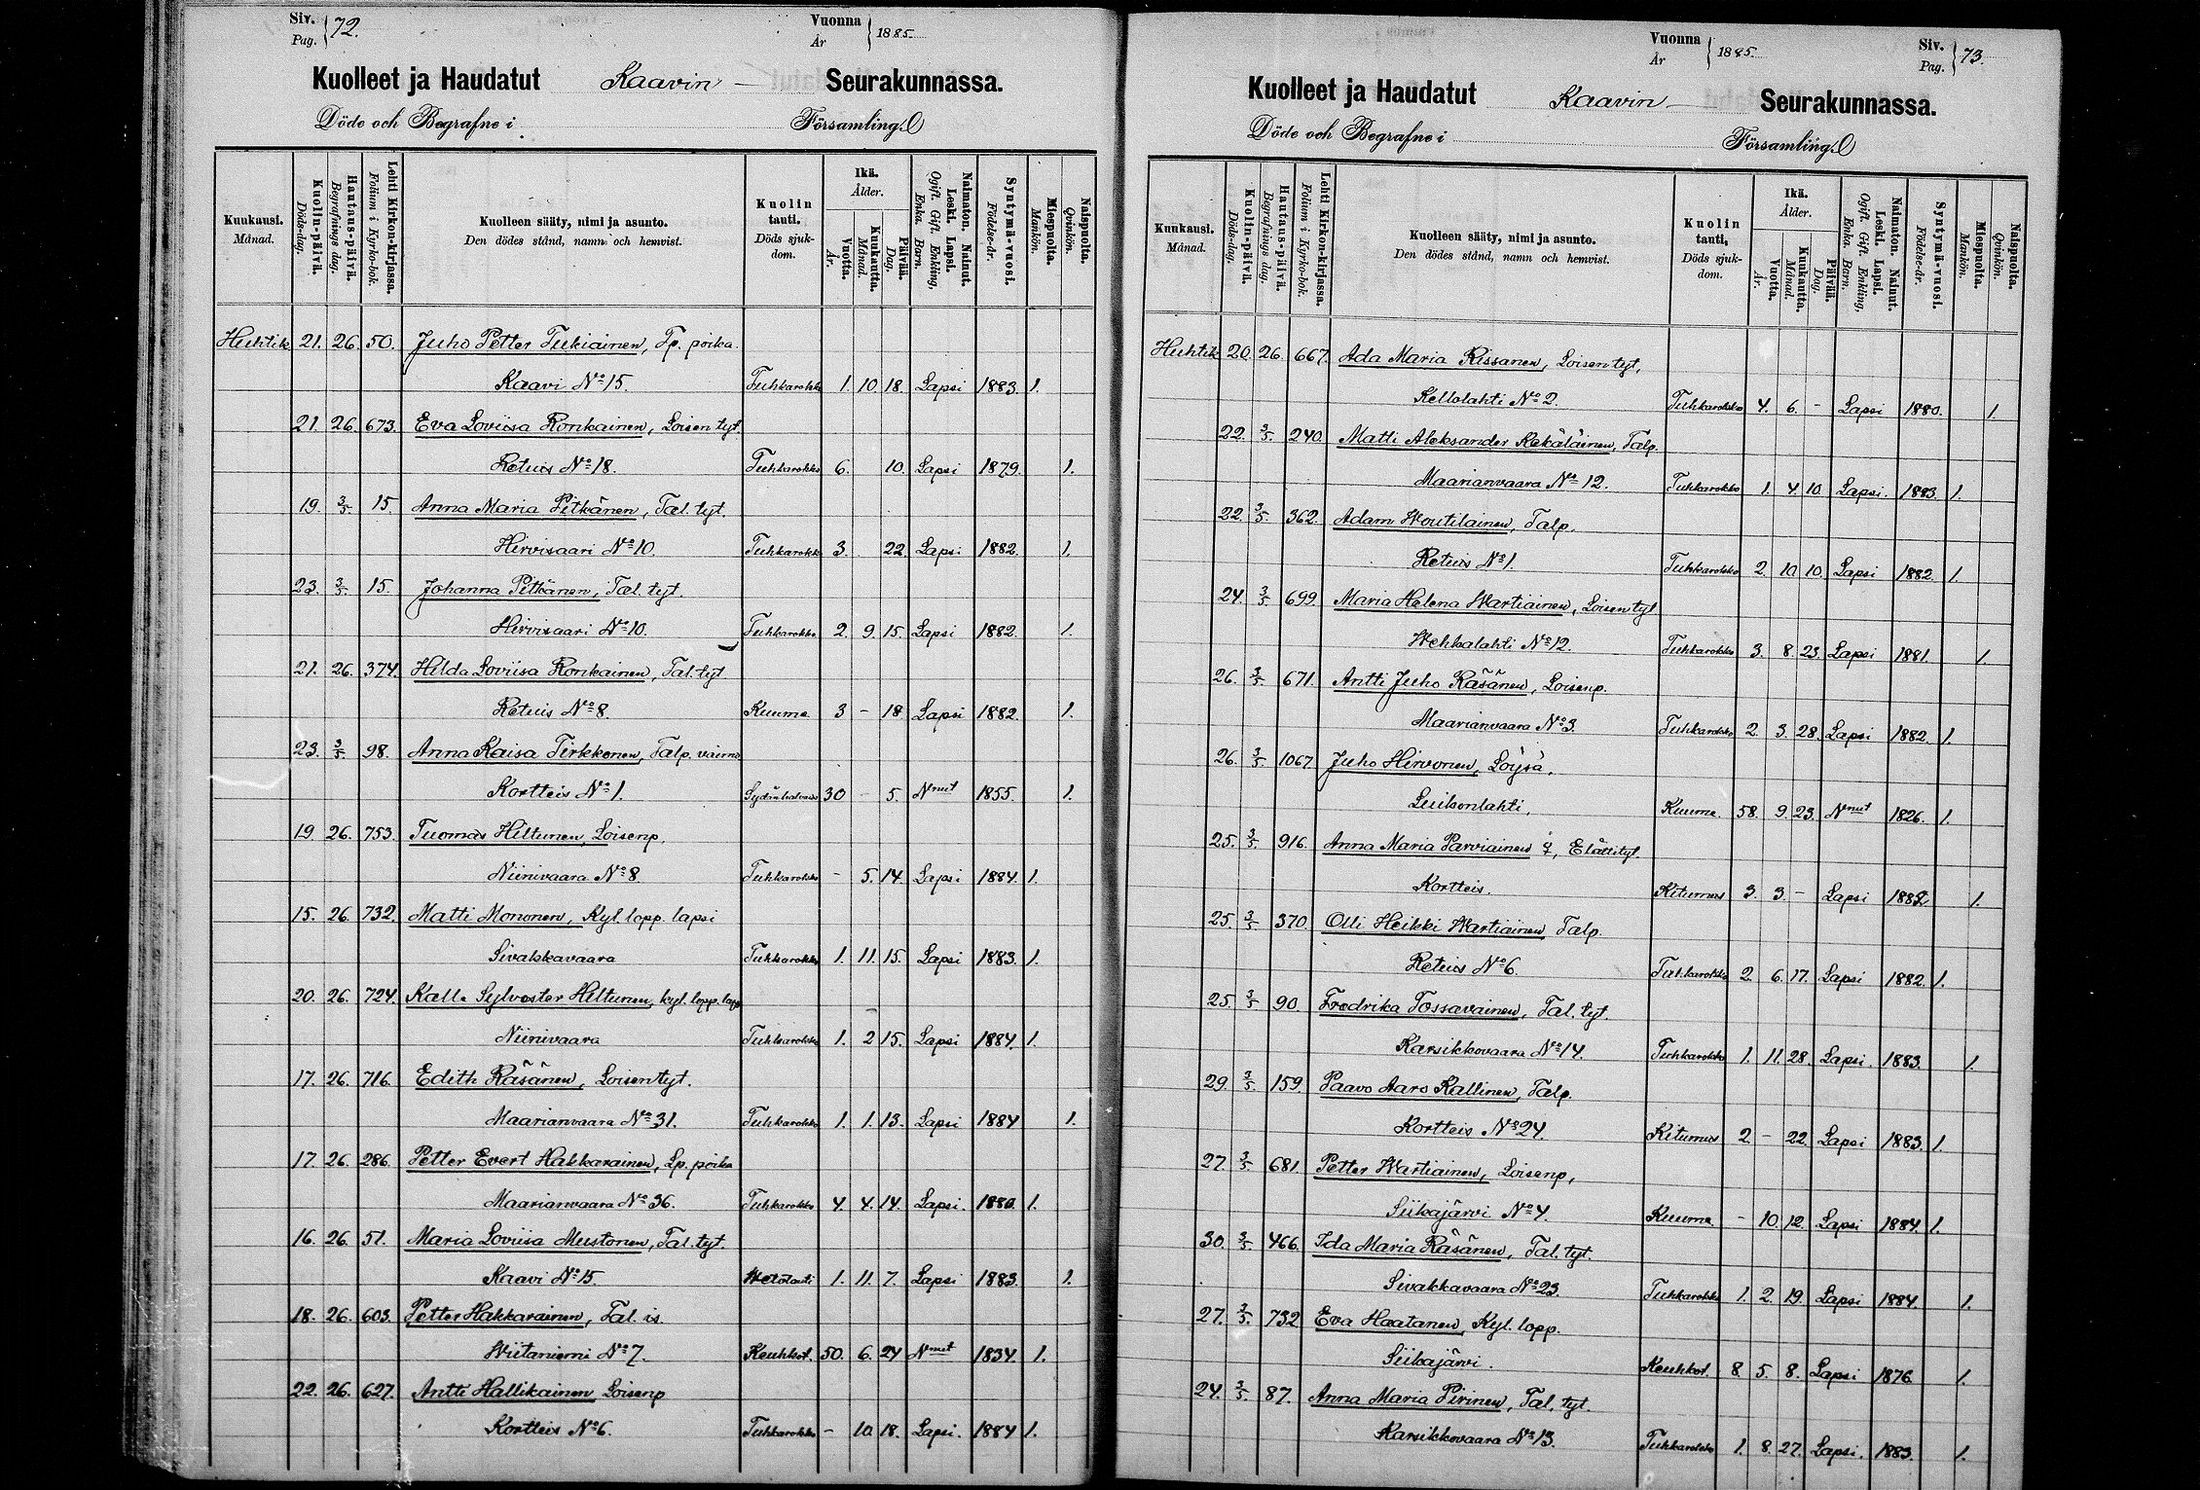 Siv. Pag. 72.
Vuonna År 1885.
Kuolleet ja Haudatut Kaavin Seurakunnassa.
Döde och Begrafne i Församling.
Kuukausi. Månad.
Kuolin-päivä. Döds-dag.
Hautaus-päivä. Begrafnings dag.
Lehti Kirkon-kirjassa. Folium i Kyrko-bok.
Kuolleen sääty, nimi ja asunto. Den dödes stånd, namn och hemvist.
Kuolin tauti. Döds sjukdom.
Ikä. Ålder.
Vuotta. År.
Kuukautta. Månad.
Päivää. Dag.
Naimaton. Nainut. Leski. Lapsi. Ogift. Gift. Enkling, Enka. Barn.
Syntymä-vuosi. Födelse-år.
Miespuolta. Mankön.
Naispuolta. Qvinkön.
Huhtik. 21. 26. 50. Juho Petter Tukiainen, Tp. poika.
Kaavi No 15. Tuhkarokko 1. 10. 18. Lapsi 1883. 1.
21. 26. 673. Eva Loviisa Ronkainen, Loisen tyt.
Retuis No 18. Tuhkarokko 6. 10. Lapsi 1879. 1.
19. 3/5. 15. Anna Maria Pitkänen, Tal. tyt.
Hirvisaari No 10. Tuhkarokko 3. 22. Lapsi 1882. 1.
23. 3/5. 15. Johanna Pitkänen, Tal. tyt.
Hirvisaari No 10. Tuhkarokko 2. 9. 15. Lapsi 1882. 1.
21. 26. 374. Hilda Loviisa Ronkainen, Tal. tyt
Retuis No 8. Kuume 3 - 18 Lapsi 1882. 1.
23. 3/5. 98. Anna Kaisa Tirkkonen, Talp. vaimo
Kortteis No 1. 30 - 5. Nnut 1855. 1.
19. 26. 753. Tuomas Hiltunen, Loisenp.
Niinivaara No 8. Tuhkarokko - 5. 14. Lapsi 1884. 1.
15. 26. 732. Matti Mononen, Kyl. lopp. lapsi
Sivakkavaara Tuhkarokko 1. 11. 15. Lapsi 1883. 1.
20. 26. 724. Kalle Sylvester Hiltunen, kyl. lopp. laps
Niinivaara Tuhkarokko 1. 2 15. Lapsi 1884. 1.
17. 26. 716. Edith Räsänen, Loisen tyt.
Maarianvaara No 31. Tuhkarokko 1. 1. 13. Lapsi 1884 1.
17. 26. 286. Petter Evert Hakkarainen, Lp. poika
Maarianvaara No 36. Tuhkarokko 4. 4. 14. Lapsi. 1880. 1.
16. 26. 51. Maria Loviisa Mustonen, Tal. tyt.
Kaavi No 15. Wetotauti 1. 11. 7. Lapsi 1883. 1.
18. 26. 603. Petter Hakkarainen, Tal. is.
Wiitaniemi No 7. Keuhkot. 50. 6. 24 Nnut 1834. 1.
22. 26. 627. Antti Hallikainen, Loisenp
Kortteis No 6. Tuhkarokko - 10. 18. Lapsi. 1884 1.
Vuonna År 1885.
Siv. Pag. 73.
Kuolleet ja Haudatut Kaavin Seurakunnassa.
Döde och Begrafne i Församling.
Kuukausi. Månad.
Kuolin-päivä. Döds-dag.
Hautaus-päivä. Begrafnings dag.
Lehti Kirkon-kirjassa. Folium i Kyrko-bok.
Kuolleen sääty, nimi ja asunto. Den dödes stånd, namn och hemvist.
Kuolin tauti, Döds sjukdom.
Ikä. Ålder.
Vuotta. År.
Kuukautta. Månad.
Päivää. Dag.
Naimaton. Nainut. Leski. Lapsi. Ogift. Gift. Enkling, Enka. Barn.
Syntymä-vuosi. Födelse-år.
Miespuolta. Mankön.
Naispuolta. Qvinkön.
Huhtik 20. 26. 667. Ada Maria Rissanen, Loisen tyt,
Kellolahti No 2. Tuhkarokko 4. 6. - Lapsi 1880. 1.
22. 3/5. 240. Matti Aleksander Kekäläinen, Talp.
Maarianvaara No 12. Tuhkarokko 1. 4 10. Lapsi. 1883. 1.
22. 3/5. 362. Adam Woutilainen, Talp.
Retuis No 1. Tuhkarokko 2. 10 10. Lapsi 1882. 1.
24. 3/5. 699. Maria Helena Wartiainen, Loisen tyt
Wehkalahti No 12. Tuhkarokko 3. 8. 23. Lapsi 1881. 1.
26. 3/5. 671. Antti Juho Räsänen, Loisenp.
Maarianvaara No 3. Tuhkarokko 2. 3. 28. Lapsi 1882. 1.
26. 3/5. 1067. Juho Hirvonen, Loysä,
Luikonlahti, Kuume. 58. 9. 23. Nnut 1826. 1.
25. 3/5. 916. Anna Maria Parviainen, Elätti tyt.
Kortteis. Kitumus 3. 3. - Lapsi 1882. 1.
25. 3/5. 370. Olli Heikki Wartiainen, Talp.
Retuis No 6. Tuhkarokko 2. 6. 17. Lapsi 1882. 1.
25. 3/5. 90. Fredrika Tossavainen, Tal. tyt.
Karsikkovaara No 14. Tuhkarokko 1. 11. 28. Lapsi. 1883. 1.
29. 3/5. 159. Paavo Aaro Kallinen, Talp.
Kortteis No 24. Kitumus 2 - 22. Lapsi 1883. 1.
27. 3/5. 681. Petter Wartiainen, Loisenp,
Siikajärvi No 4. Kuume - 10. 12. Lapsi 1884. 1.
30. 3/5. 466. Ida Maria Räsänen, Tal. tyt.
Sivakkavaara No 23. Tuhkarokko 1. 2. 19. Lapsi 1884. 1.
27. 3/5. 732 Eva Haatanen, Kyl. lopp.
Siikajärvi. Keuhkot. 8 5. 8. Lapsi 1876. 1.
24. 3/5. 87. Anna Maria Pirinen, Tal. tyt.
Karsikkovaara No 13. Tuhkarokko 1. 8. 27. Lapsi. 1883. 1.